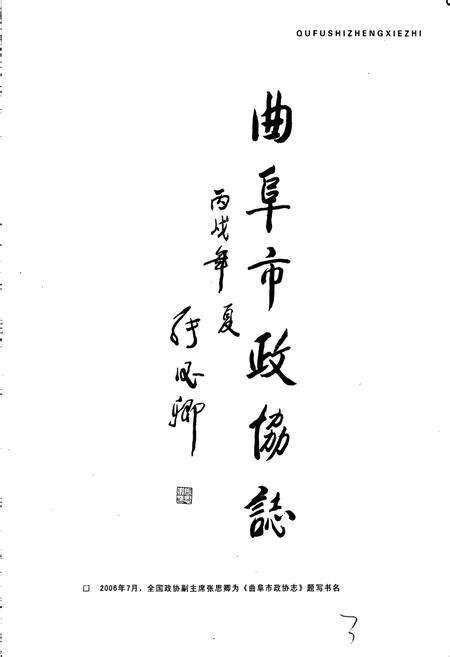 QUFUSHIZHENGXIEZHI
曲阜市政协誌
丙戌年夏
张思卿
□ 2006年7月，全国政协副主席张思卿为《曲阜市政协志》题写书名
3